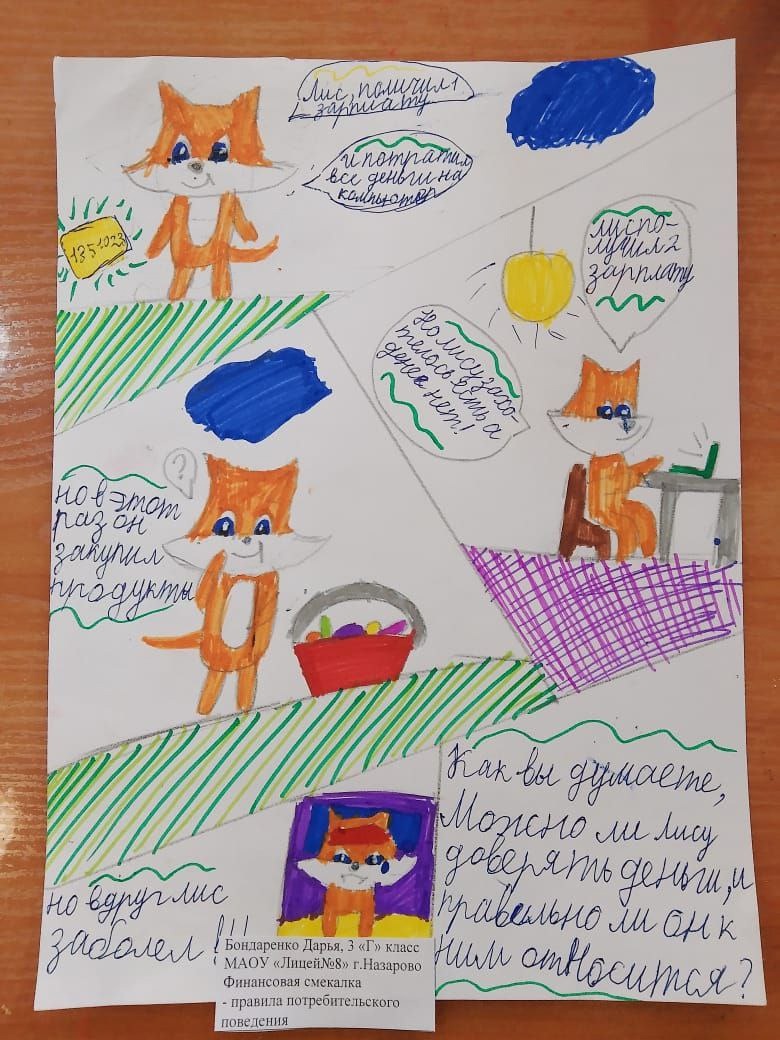 Лис, получил 1
зарплату
и потратил
все деньги на
компьютер
1351023
но лису захо-
телось есть а
денег нет!
лис по-
лучил 2
зарплату
?
но в этот
раз он
закупил
продукты
но вдруг лис
заболел!!!
Как вы думаете,
Можно ли лису
доверять деньги, и
правельно ли он к
ним относится?
Бондаренко Дарья, 3 «Г» класс
МАОУ «Лицей№8» г.Назарово
Финансовая смекалка
- правила потребительского
поведения